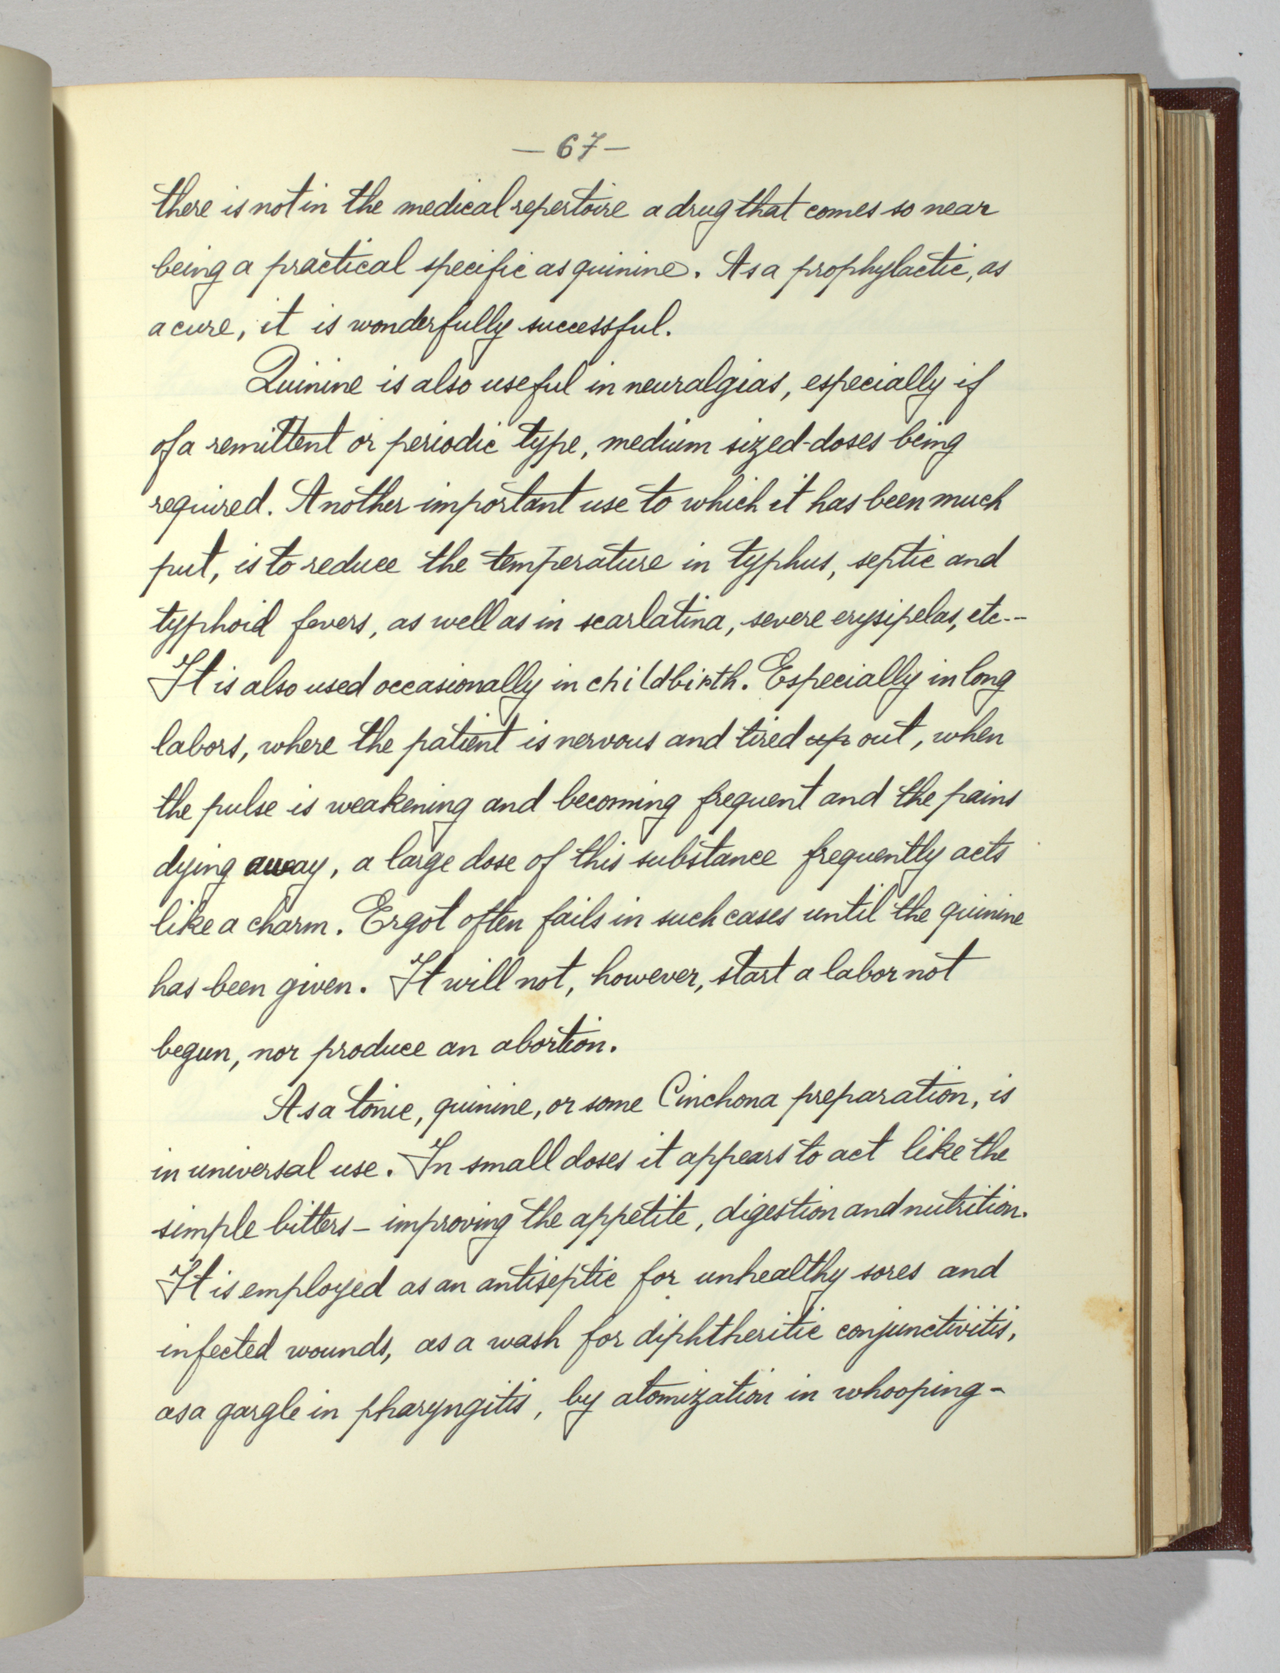 — 67 —
there is not in the medical repertoire a drug that comes so near
being a practical specific as quinine. As a prophylactic, as
a cure, it is wonderfully successful.
Quinine is also useful in neuralgias, especially if
of a remittent or periodic type, medium sized-doses being
required. Another important use to which it has been much
put, is to reduce the temperature in typhus, septic and
typhoid fevers, as well as in scarlatina, severe erysipelas, etc--
It is also used occasionally in childbirth. Especially in long
labors, where the patient is nervous and tired up out, when
the pulse is weakening and becoming frequent and the pains
dying away, a large dose of this substance frequently acts
like a charm. Ergot often fails in such cases until the quinine
has been given. It will not, however, start a labor not
begun, nor produce an abortion.
As a tonic, quinine, or some Cinchona preparation, is
in universal use. In small doses it appears to act like the
simple bitters - improving the appetite, digestion and nutrition.
It is employed as an antiseptic for unhealthy sores and
infected wounds, as a wash for diphtheritic conjunctivitis,
as a gargle in pharyngitis, by atomization in whooping-